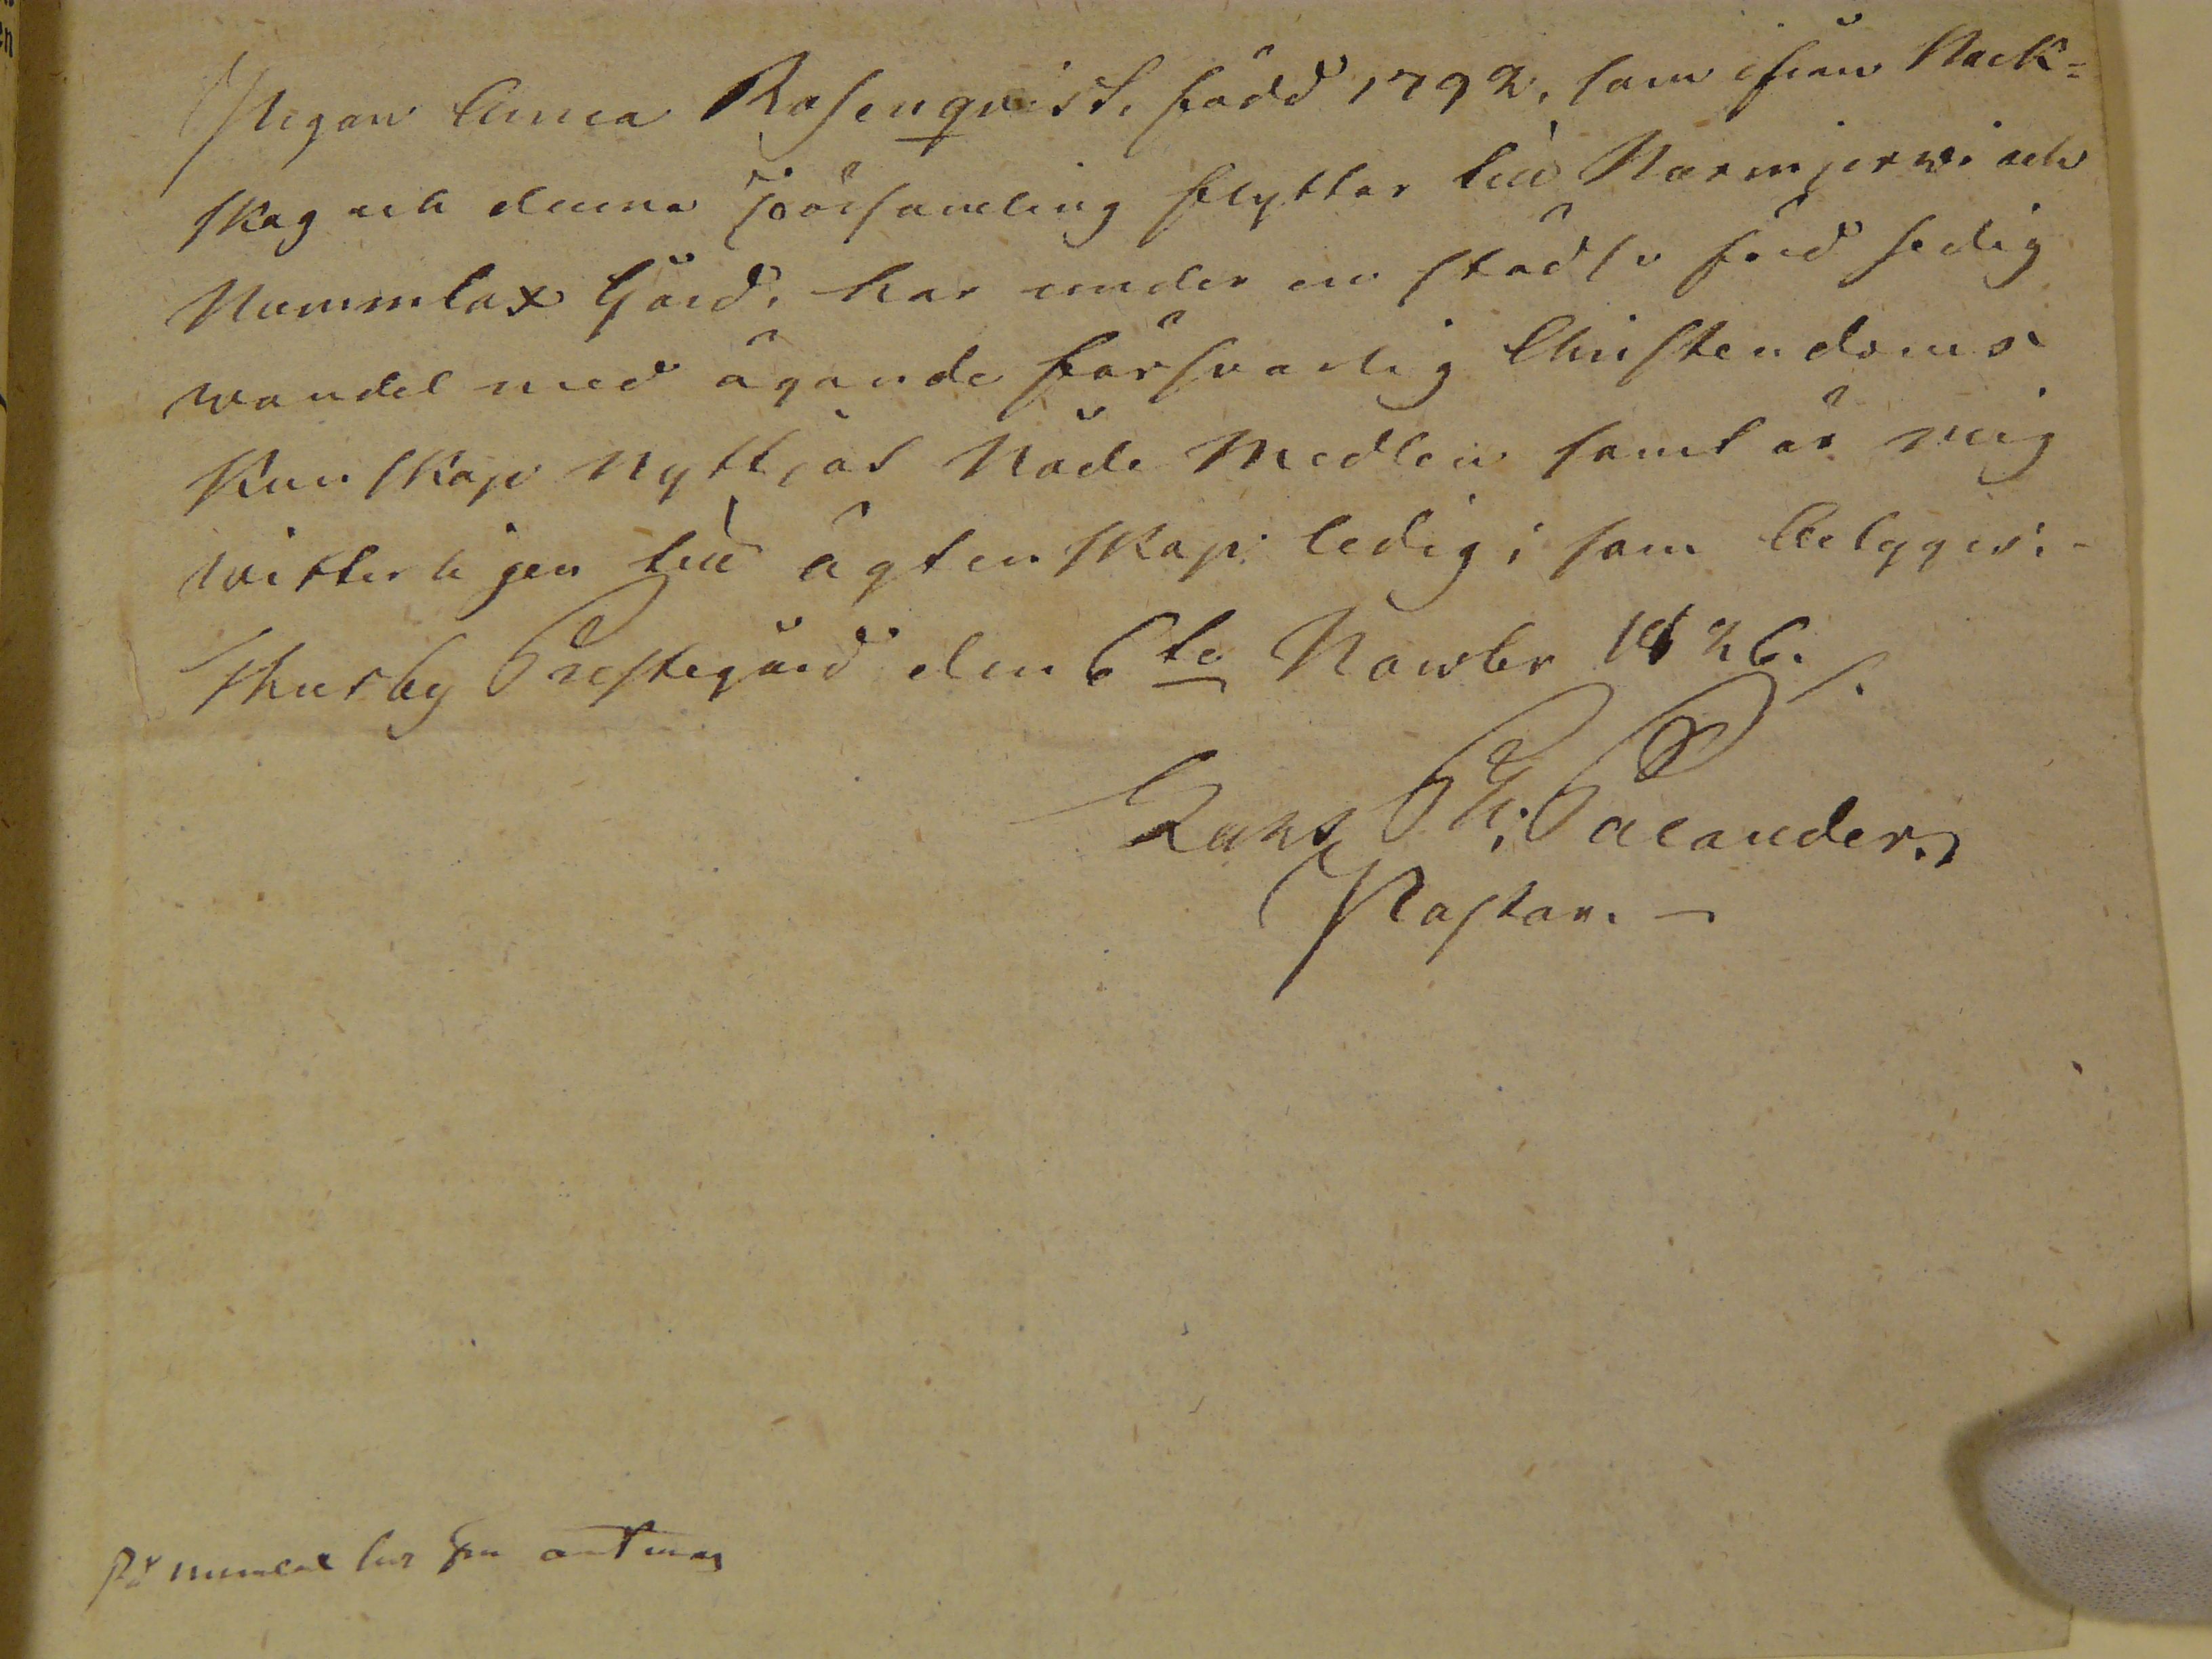 Pigan Anna Rosenqvist, född 1792, som ifrån Näck-
skog och denna Församling flyttar till Normjerwi och
Nummlax Gård, har under en städse förd sedig
wandel med ägande försvarlig Christendoms
Kunskap nyttjat Nåde Medlen samt är mig
witterligen till ägtenskap ledig; som betygas.-
Thusby Prestegård den 6te Nowbr 1826.
Lars Ph. Palander
Pastor. -
På numlax hos